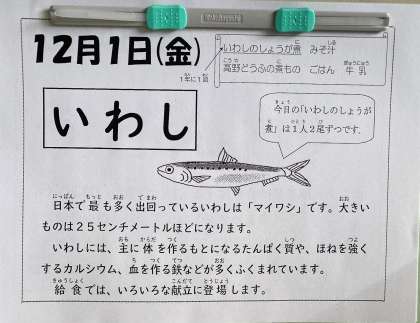 12月1日(金)
1年に1回
いわしのしょうが煮 みそ汁
高野どうふの煮もの ごはん 牛乳
いわし
今日の「いわしのしょうが
煮」は1人2尾ずつです。
日本で最も多く出回っているいわしは「マイワシ」です。大きい
ものは25センチメートルほどになります。
いわしには、主に体を作るもとになるたんぱく質や、ほねを強く
するカルシウム、血を作る鉄などが多くふくまれています。
給食では、いろいろな献立に登場します。